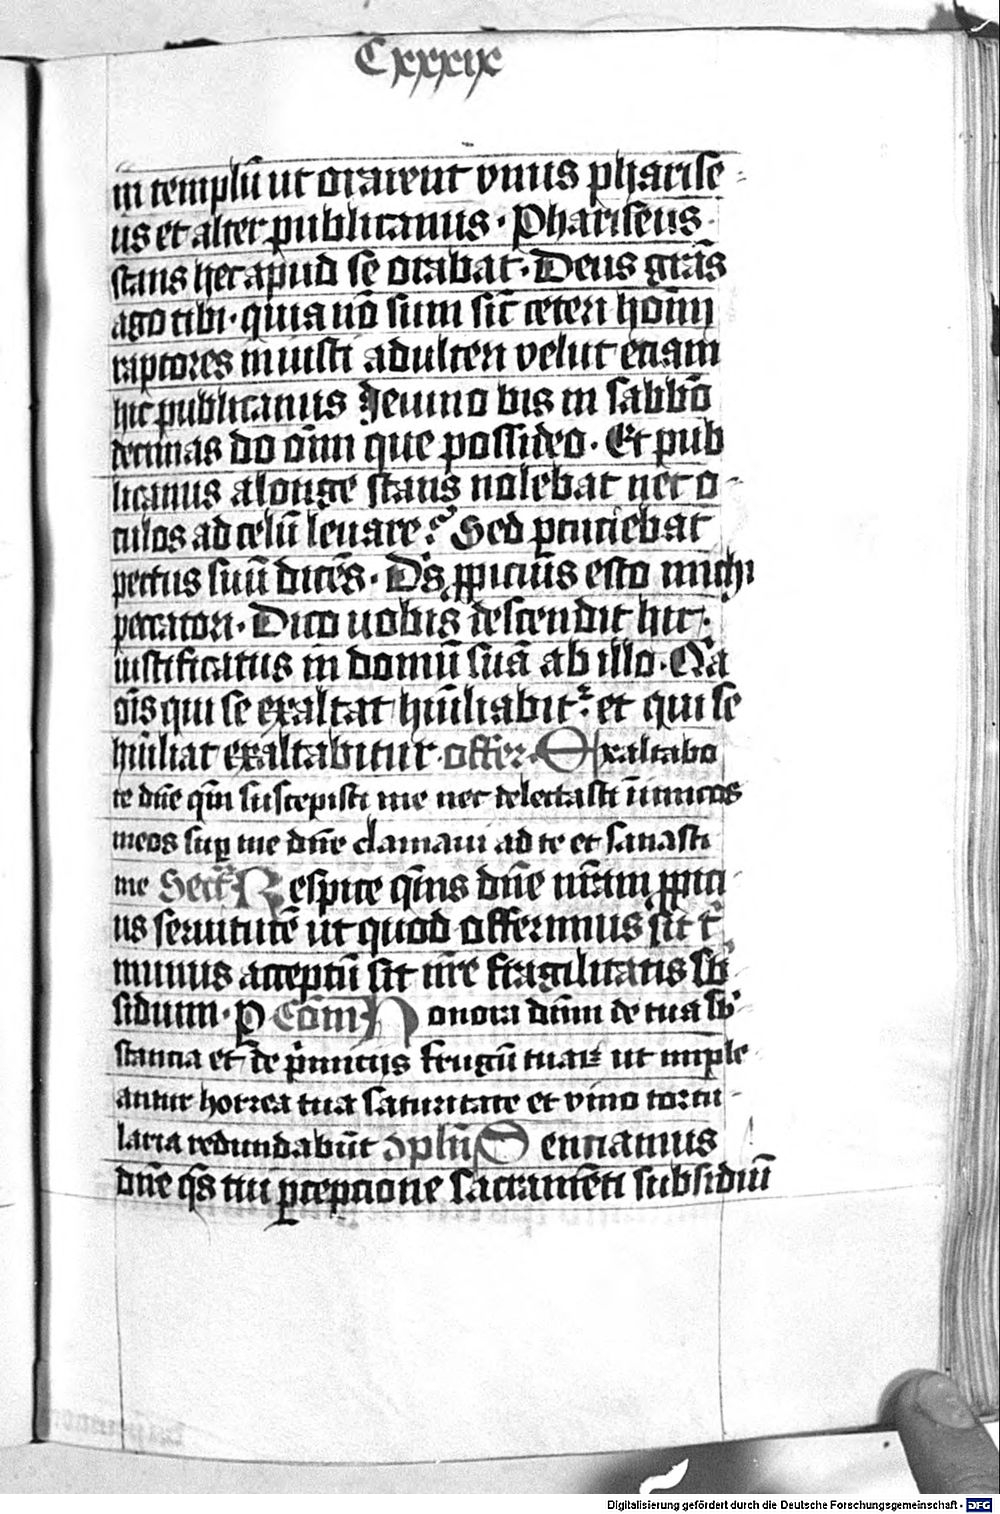 Cxxxix
in templū ut orarent vnus pharise-
us et alter publicanus · Phariseus
stans hec apud se orabat · Deus grās
ago tibi · quia nō sum sic̄ ceteri hōm̄
raptores iniusti adulteri velut etiam
hic publicanus Jeiuno bis in sabbō
decimas do om̄ que possideo · Et pub
licanus a longe stans nolebat nec o-
culos ad celū leuare Sed pcuciebat
pectus suū dicēs · Ds̄ ppicius esto michi
peccatori · Dico uobis descendit hic
iustificatus in domū suā ab illo · Qa
oīs qui se exaltat hūiliabit et qui se
hūiliat exaltabitur · offer · Exaltabo
te dn̄e qm̄ suscepisti me nec delectasti inimicos
meos sup me dn̄e clamaui ad te et sanasti
me Secr̄ Respice qs̄ dn̄e nr̄am ppici
us seruitutē ut quod offerimus sit t
munus acceptū sit nr̄e fragilitatis sb
sidium · p Cōm Honora dn̄m de tua sb
stancia et de pmicijs frugū tuaꝝ ut imple
antur horrea tua saturitate et vino torcu-
laria redundabūt Cōplū Sentiamus
dn̄e qs̄ tui pcepcione sacramēti subsidiū
Digitalisierung gefördert durch die Deutsche Forschungsgemeinschaft - DFG